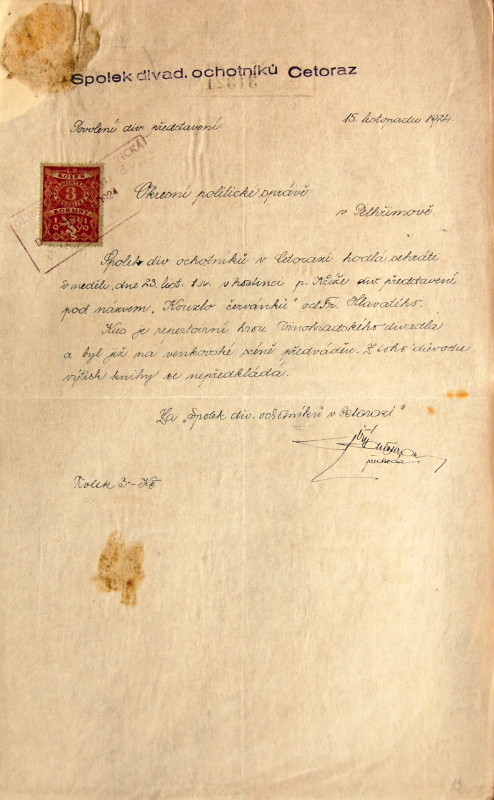 Spolek divad. ochotníků Cetoraz
15. listopadu 1924.
Povolení div. představení
KOLEK
3
KORUNY
Okresní politické správě
v Pelhřimově
Spolek div. ochotníků v Cetorazi hodlá sehráti
v neděli, dne 23. list. t. r. v hostinci p. Kříže div. představení
pod názvem „Kouzlo červánků" od Fr. Hlavatého.
Kus je repertoirní hrou Vinohradského divadla
a byl již na venkovské scéně předváděn. Z toho důvodu
výtisk knihy se nepředkládá.
Za „Spolek div. ochotníků v Cetorazi"
předseda
Kolek 3.- Kč